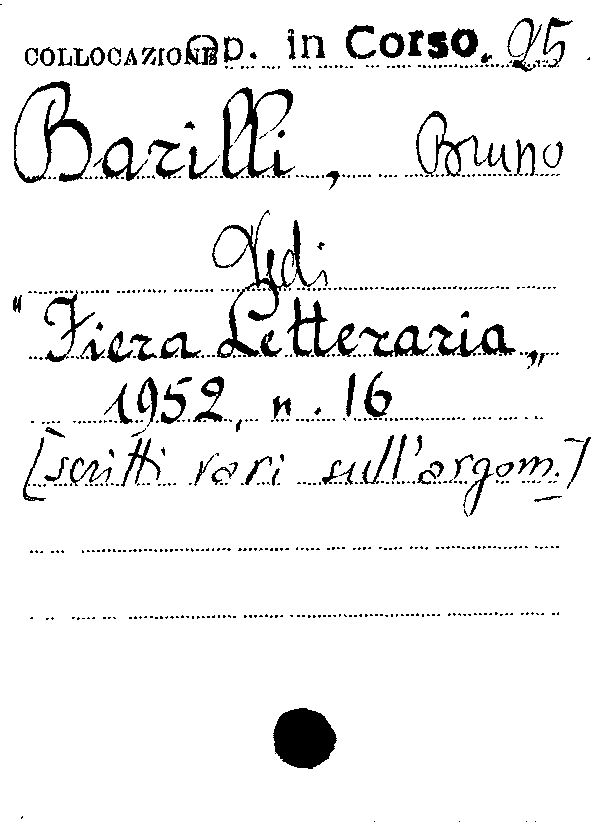 COLLOCAZIONE Op. in Corso. 95
Barilli, Bruno
Vedi
"Fiera Letteraria„
1952, n. 16
[scritti vari sull'argom.]